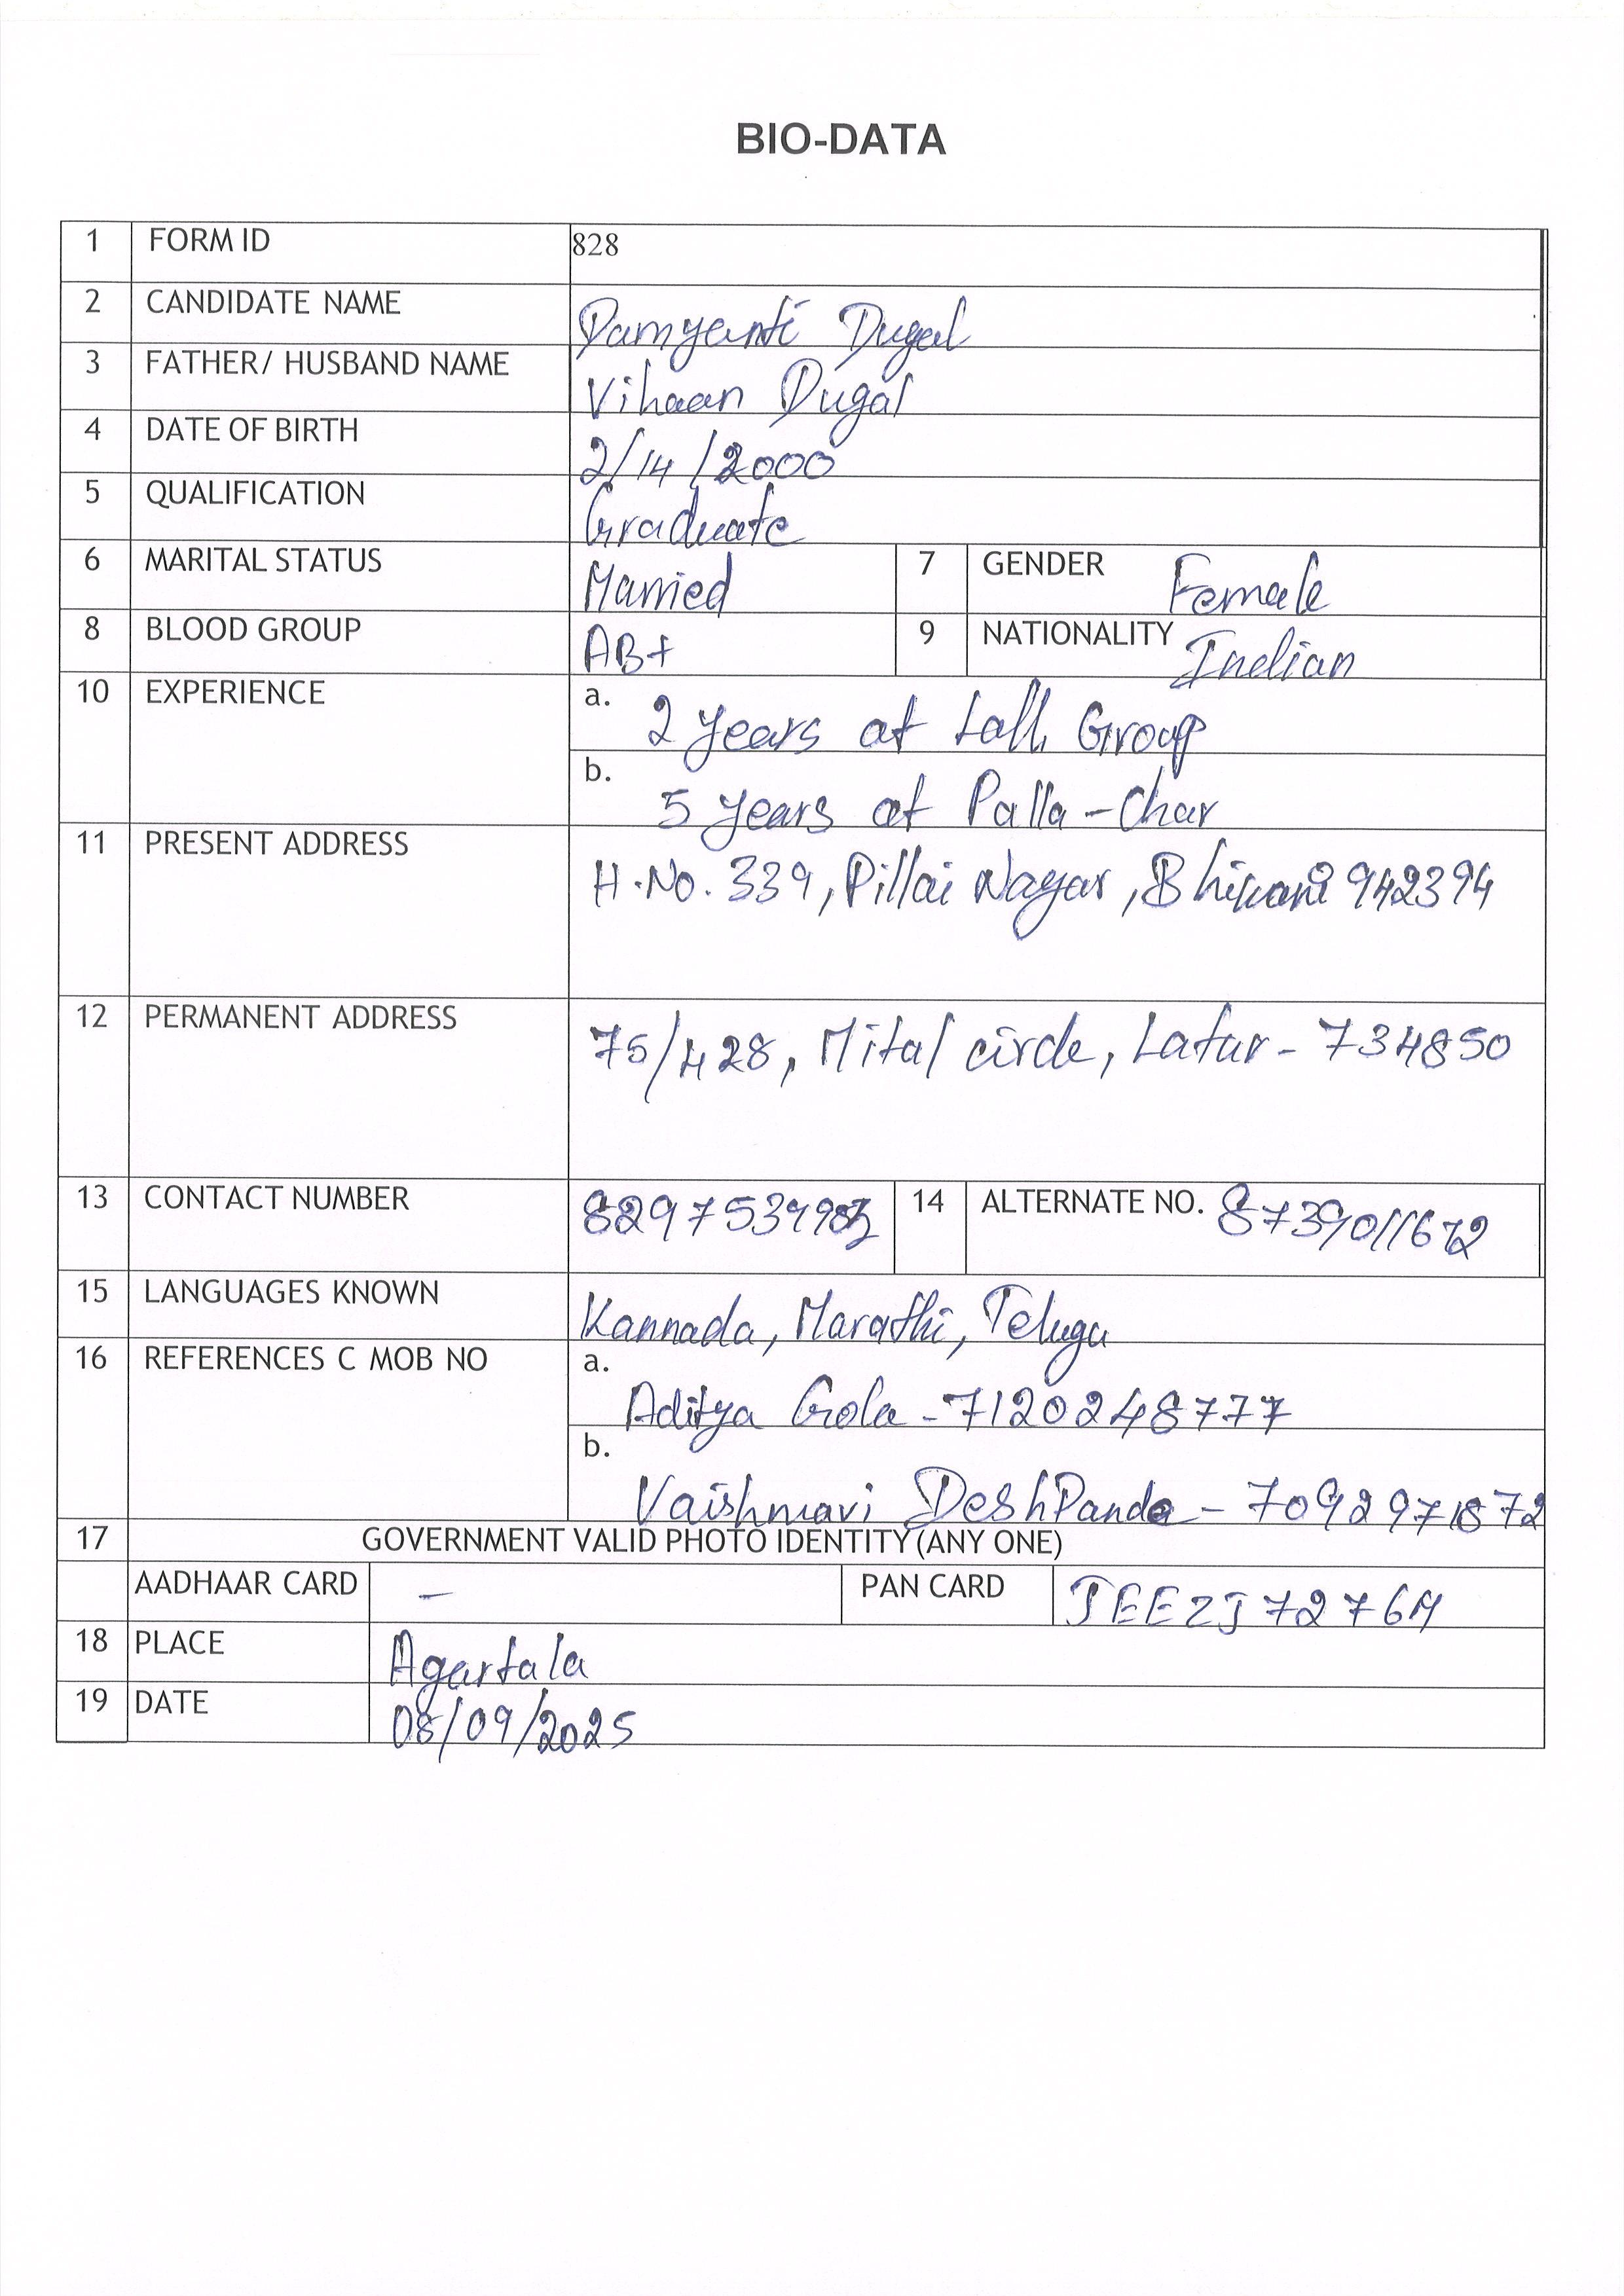 BIO-DATA
1 FORM ID 828
2 CANDIDATE NAME Damyanti Dugal
3 FATHER/ HUSBAND NAME Vihaan Dugal
4 DATE OF BIRTH 2/14/2000
5 QUALIFICATION Graduate
6 MARITAL STATUS Married 7 GENDER Female
8 BLOOD GROUP AB+ 9 NATIONALITY Indian
10 EXPERIENCE a. 2 years at Lall Group
b. 5 years at Palla-Char
11 PRESENT ADDRESS H.No. 339, Pillai Nagar, Bhiwani 942394
12 PERMANENT ADDRESS 75/428, Mital circle, Latur - 734850
13 CONTACT NUMBER 14 ALTERNATE NO. 8739011672
15 LANGUAGES KNOWN Kannada, Marathi, Telugu
16 REFERENCES C MOB NO a. Aditya Gola - 7120248777
b. Vaishnavi DeshPande - 7092971872
17 GOVERNMENT VALID PHOTO IDENTITY (ANY ONE)
AADHAAR CARD — PAN CARD JEEZJ7276M
18 PLACE Agartala
19 DATE 08/09/2025